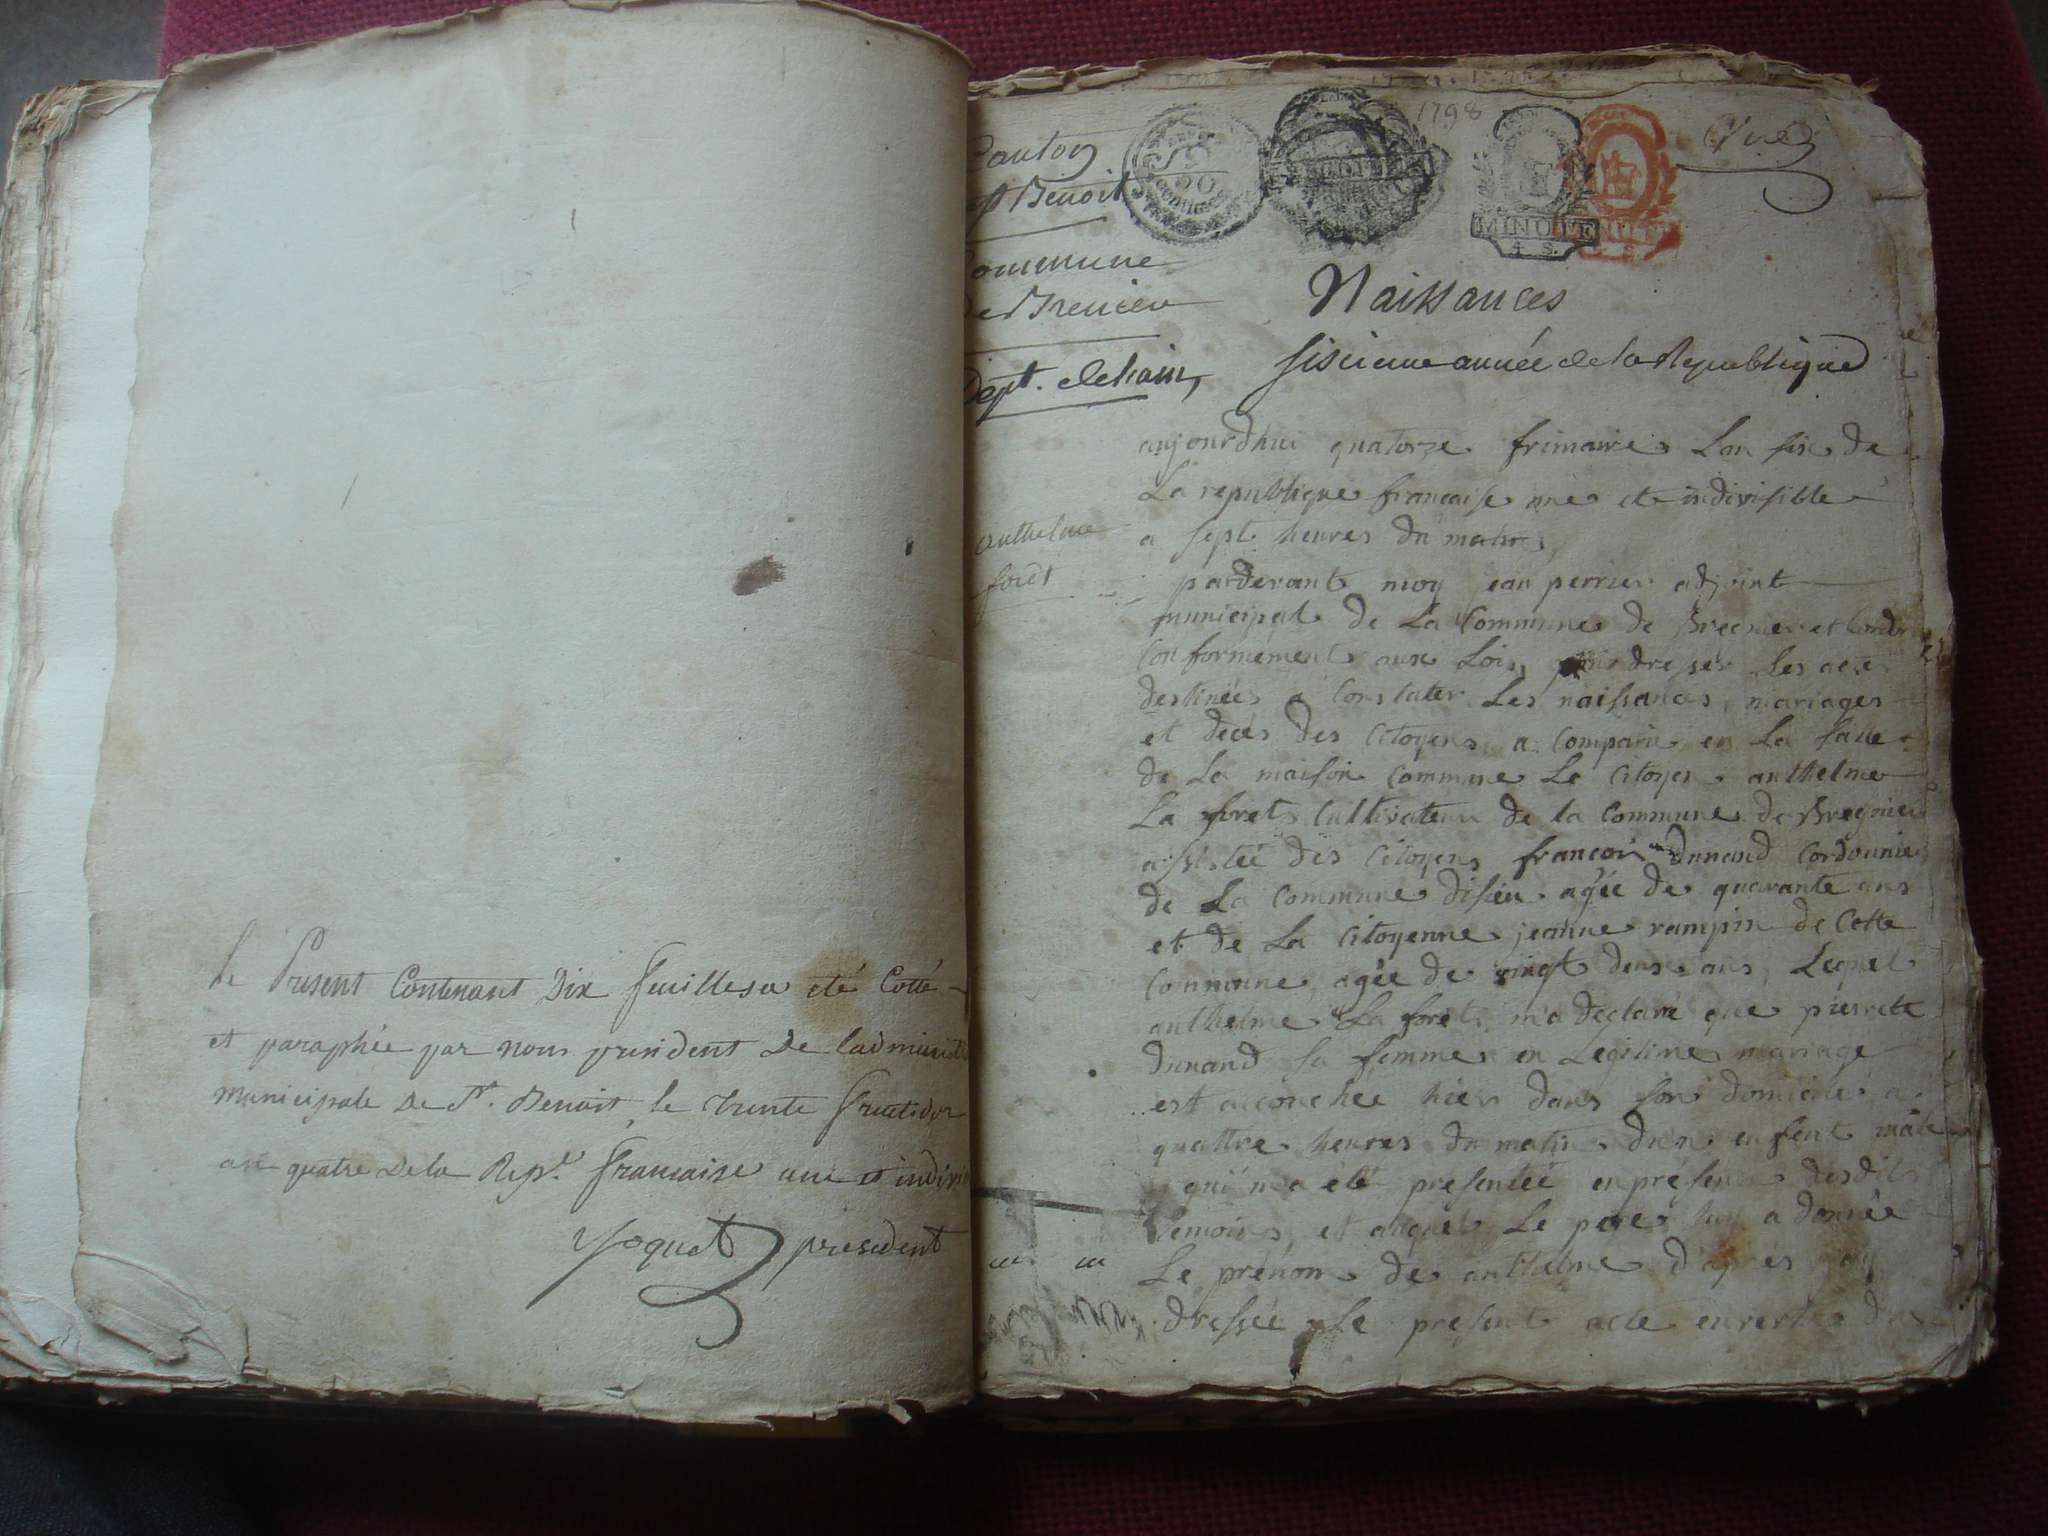 Le Present Contenant Dix feuilles a eté Cotté
et paraphée par nous president de ladminist
municipale de St. Benoit le trente fructidor
an quatre de la Rep. francaise une et indivis
Yoquet president
Canton
st Benoit
Commune
de
Dept. de Lain,
20
centimes
1798
MINUTE
4 S.
Naissances
sisieme année de la Republique
anthelme
foret
aujourdhui quatorze frimaire Lan six de
La republique francaise une et indivisible
a sept heures du matin
pardevant moy jean perrier adjoint
municipal de La Commune de Bregnier et Cordon
Conformément aux Lois, pour dresser Les actes
destinées a Constater Les naissances, mariages
et décés des Citoyens, a comparu en La salle
de La maison commune Le Citoyen anthelme
La foret Cultivateur de la commune de Bregnier
assistée des Citoyens francois dunand Cordonnier
de La commune agée de quarante ans
et de La Citoyenne jeanne rampin de Cette
commune agée de vingt deux ans, Lequel
anthelme La foret, ma déclaré que pierrete
dunand sa femme en Légitime mariage
est accouchée hier dans son domicile a
quattre heures du matin dun enfent mâle
qui ma été présentée en présence desdits
temoins, et auquel Le pere luy a donnée
Le prénom de anthelme d'apres
dressée Le présent acte en vertu